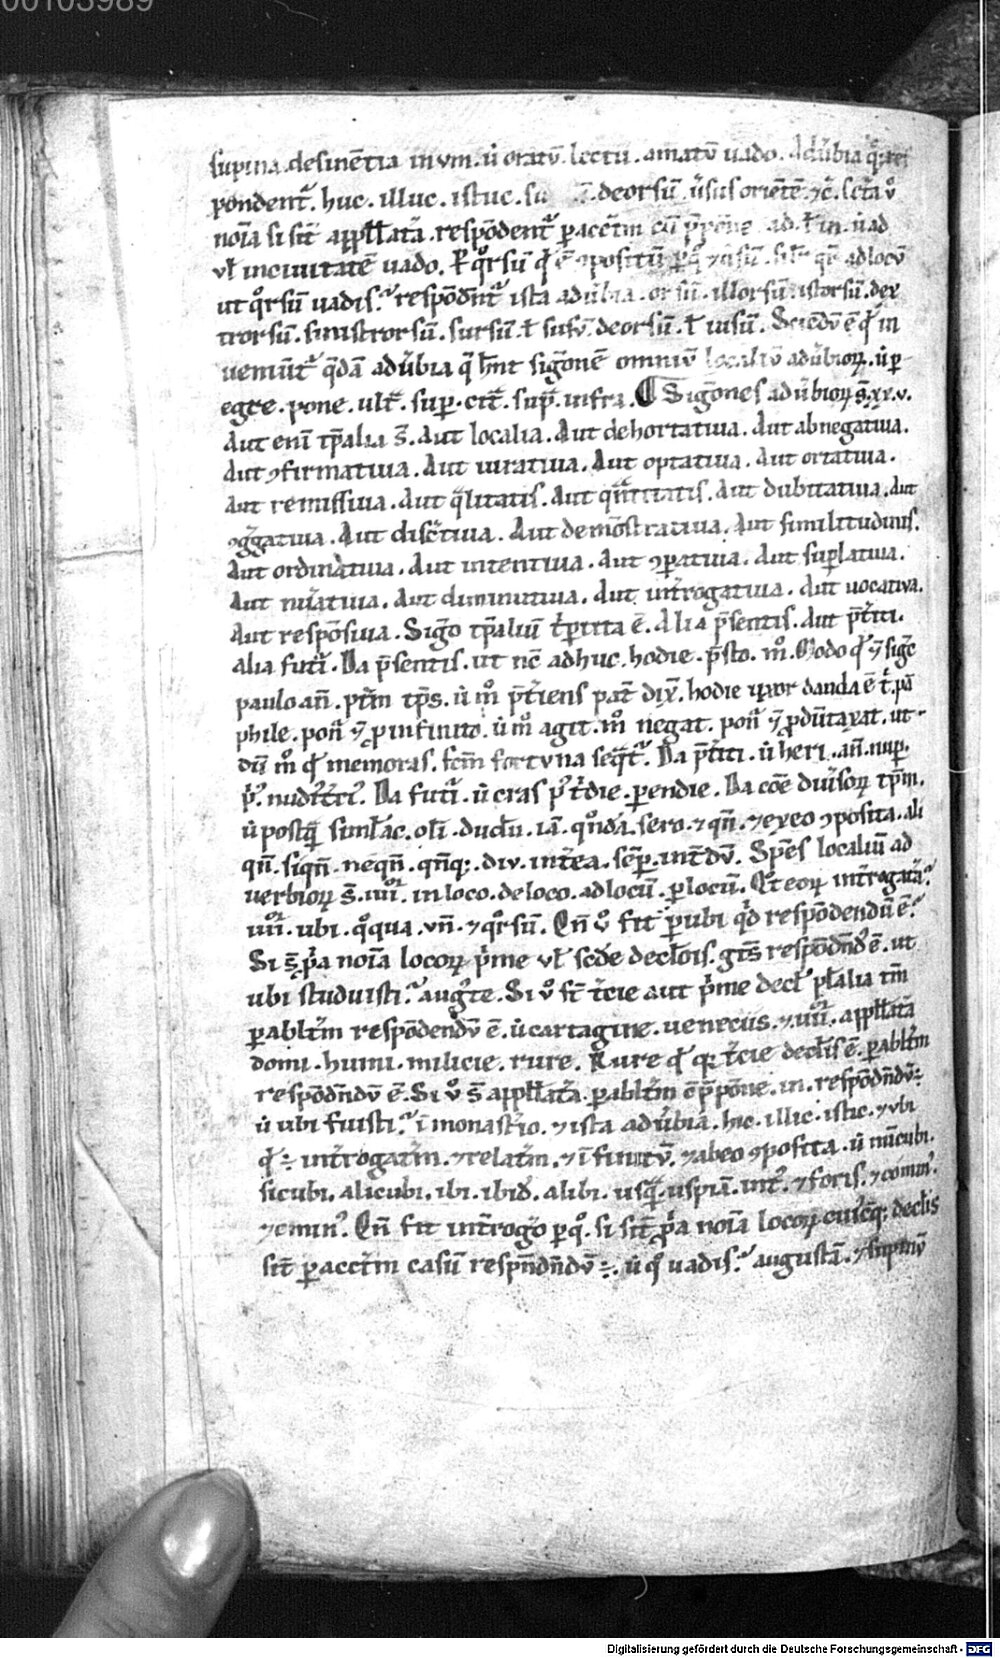 00103989
supina. desinētia in vm. u̇ oratū. lectū. amatū uado. Adu̇bia q̄ res
pondent᷑. huc. illuc. istuc. su deorsū. u̇sus oriētē ⁊c̄.
noīa si sīt appl̄latā. respōdent᷑ p̲acc̄tm cū ad. ł in. u̇ ad
vł in ciuitatē uado. qͦrsū qd̄ ē ꝯpositū ad locū
ut qͦrsū uadis.ˀ respōdn̄t᷑ ista adu̇bia. orsū. illorsū. istorsū. dex
trorsū. sinistrorsū. sursū. ł susū. deorsū. ł iusū. Sciēdū ē qd̄ in
ueniūt᷑ q̄dā adu̇bia q̄ hn̄t sigōnē omniū localiū adu̇bioꝝ. u̇ p̲
egre. pone. ult̄. sup̲. cit̄. sup̄. infra. ¶ Sigōnes adu̇bioꝝ s̄. xx.v.
Aut enī tp̄alia s̄. Aut localia. Aut dehortatiua. Aut abnegatiua.
Aut ꝯfirmatiua. Aut iuratiua. Aut optatiua. Aut ortatiua.
Aut remissiua. Aut q̄litatis. Aut qn̄titatis. Aut dubitatiua. Aut
ꝯḡgatiua. Aut disc̄tiua. Aut demōstratiua. Aut similitudinis.
Aut ordinatiua. Aut intentiua. Aut ꝯp̲atiua. Aut sup̲latiua.
Aut nūatiua. Aut diminutiua. Aut int̄rogatiua. Aut uocatiua.
Aut respōsiua. Sigō tp̄aliū t̄p̲tita ē. Alia p̄sentis. Aut p̄t̄iti.
alia futī. Da p̄sentis. ut nc̄ adhuc. hodie. p̄sto. mͦ. Modo qd̄ ⁊ sigc̄
paulo an̄. pt̄m tp̄s. u̇ mͦ p̄t̄iens pat̄ dix̄. hodie uxor danda ē t̄. pā
phile. ponī ⁊ p̲ infinito. u̇ mͦ agit. mͦ negat. ponī ⁊ p̲ dūtaxat. ut
dū mͦ qd̄ memoras. fcm̄ fortvna seqt᷑. Da p̄t̄iti. u̇ heri. an̄. nup̲.
Da futī. u̇ cras pˀ t̄die. p̲endie. Da cōē diu̇soꝝ tp̄m.
u̇ postq̄ siml̄ac. oli. dudū. iā. qͦndā. sero. ⁊ qn̄. ⁊ ex eo ꝯposita. ali
qn̄. siqn̄. neqn̄. qn̄qꝫ. div. int̄ea. sēp̲. int̄dū. Spēs localiū ad
uerbioꝝ s̄. iiii. in loco. de loco. ad locū. p̲ locū. Qͦt eoꝝ int̄rogatā.ˀ
iiii. ubi. qͦ qua. vn̄. ⁊ qͦrsū. Qn̄ vͦ fit p̲ ubi qͥd respōdendū ē.ˀ
Si s̄ p̲p̄a noīa locoꝝ p̄me vł scd̄e declōis. gt̄s respōdn̄dū ē. ut
ubi studuisti.ˀ auguste. Si vͦ st̄ t̄cie aut p̄me decl̄ pl̄alia tm̄
p̲ ablt̄m respōdendū ē. u̇ cartagine. ueneciis. ⁊ iiii. appl̄latā
domi. humi. milicie. rure. Rure qd̄ qꝛ t̄cie declīs ē. p̲ ablt̄m
respōdn̄dū ē. Si vͦ s̄ appl̄latā. p̲ ablt̄m ē p̄pōne. in. respōdn̄dū
u̇ ubi fuisti.ˀ ī monast̄io. ⁊ ista adu̇bia. hic. illic. istic. ⁊ vbi
qd̄ ÷ int̄rogatm̄. ⁊ relatm̄. ⁊ īfinitū. ⁊ ab eo ꝯposita. u̇ nūcubi.
sicubi. alicubi. ibi. ibid̄. alibi. usq̄. uspiā. int᷑. ⁊ foris. ⁊ comin᷑.
⁊ emin᷑. Qn̄ fit int̄rogō p̲ qͦ. si sīt p̲p̄a noīa locoꝝ cuiꝰcūqꝫ declīs
sīt p̲ acct̄m casū respn̄dn̄dū ÷. u̇ qͦ uadis.ˀ augustā. ⁊ supinū
Digitalisierung gefördert durch die Deutsche Forschungsgemeinschaft - DFG